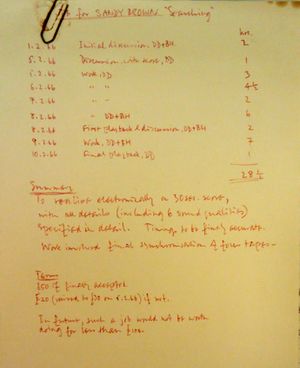 Job for SANDY BROWN "Searching"
hrs.
1.2.66 Initial discussion, DD+BH 2
5.2.66 Discussion with score, DD 1
5.2.66 Work, DD 3
6.2.66 " " 4½
7.2.66 " " 2
8.2.66 " DD+BH 6
8.2.66 First playback & discussion, DD+BH 2
9.2.66 Work, DD+BH 7
10.2.66 Final playback, DD 1
28½
Summary
To realise electronically a 30 sec. score,
with all details (including 6 sound qualities)
specified in detail. Timings to be finely accurate.
Work involved final synchronisation of four tapes.
Terms
£50 if finally accepted
£20 (raised to £30 on 5.2.66) if not.
In future, such a job would not be worth
doing for less than £100.